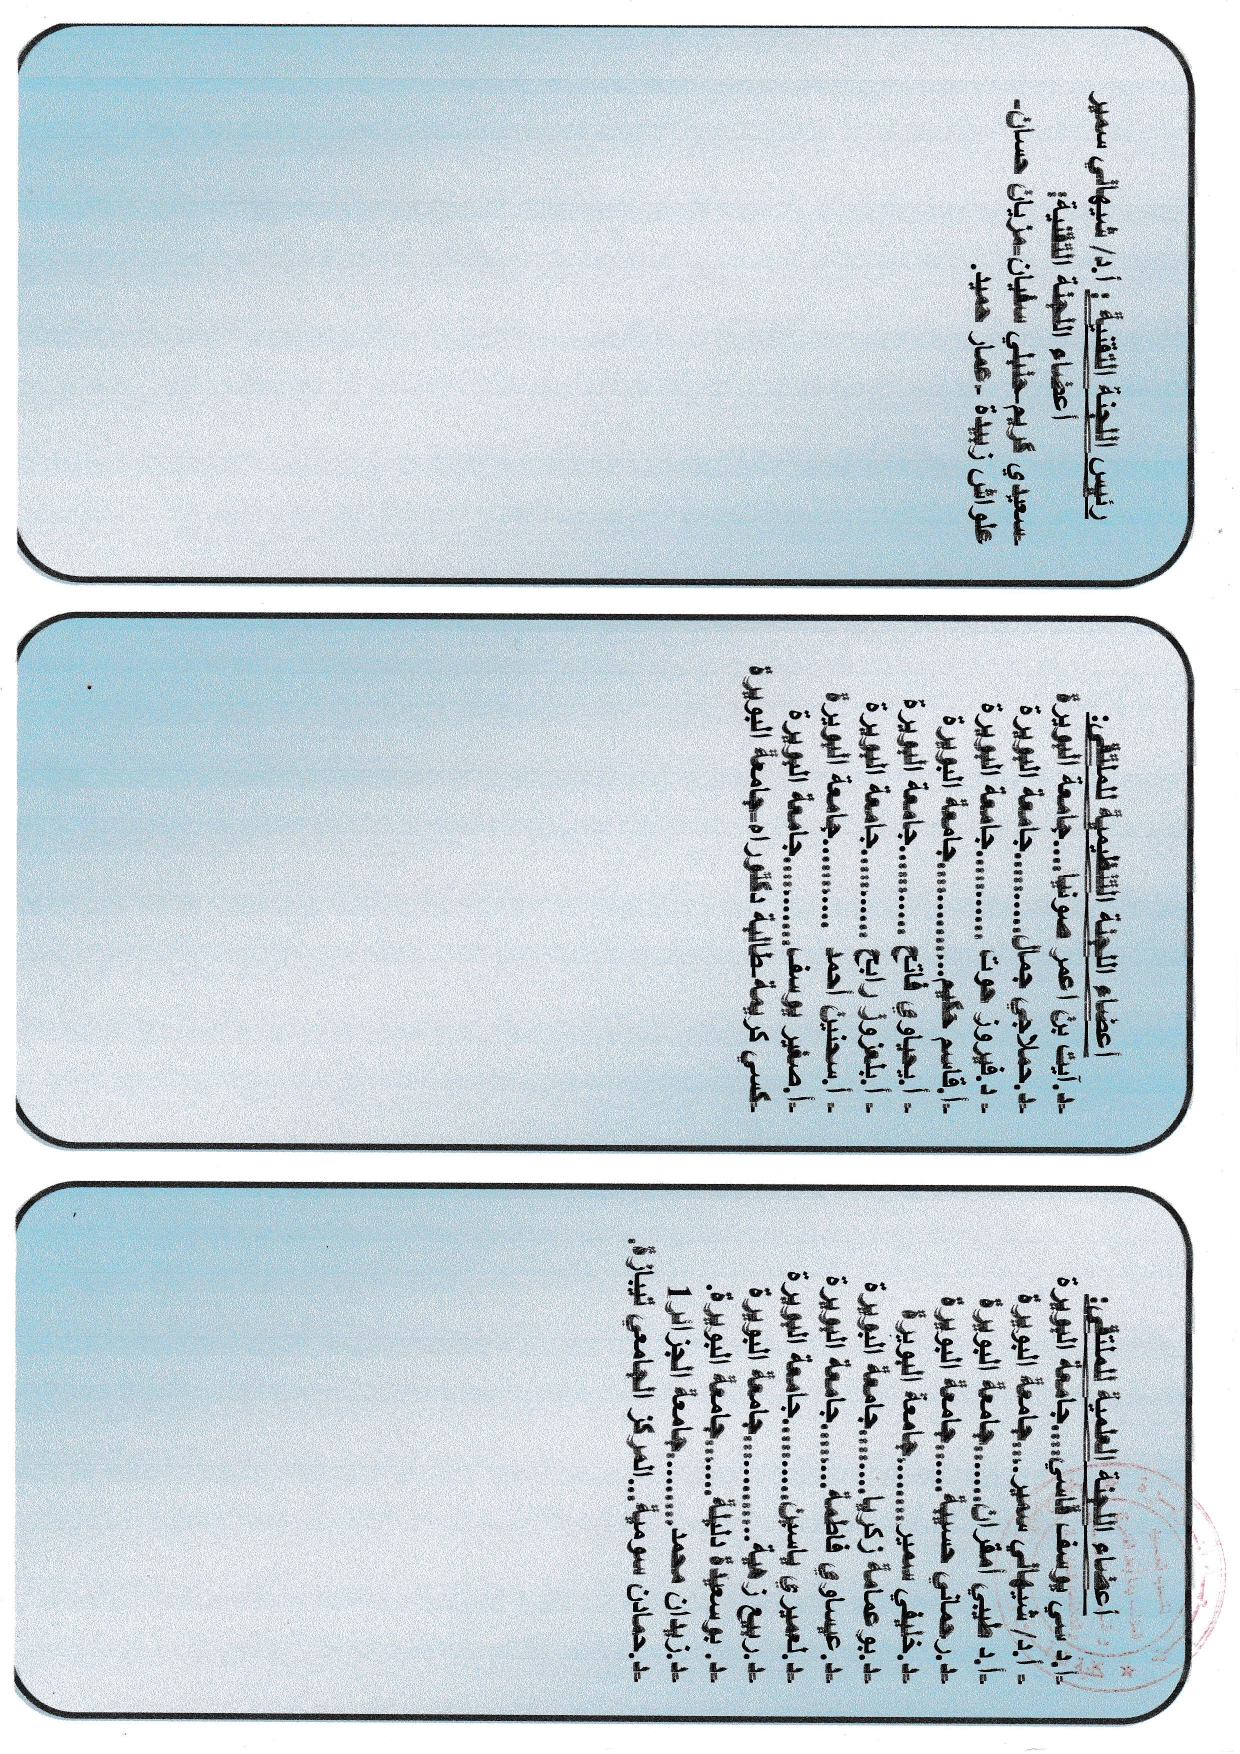 أعضاء اللجنة العلمية للملتقى:
-أ.د سي يوسف قاسي....جامعة البويرة
- أ.د/ شيهاني سمير....جامعة البويرة
-أ.د طيبي أمقران.......جامعة البويرة
-د.رحماني حسيبة......جامعة البويرة
-د.خليفي سمير..........جامعة البويرة
-د.بو عمامة زكريا.......جامعة البويرة
-د.عيساوي فاطمة........جامعة البويرة
-د.لعميري ياسين...........جامعة البويرة
-د.ربيع زهية...............جامعة البويرة
-د. بوسعيدة دليلة.......جامعة البويرة.
-د.زيدان محمد..........جامعة الجزائر1
-د.حمادن سومية....المركز الجامعي تيبازة.
أعضاء اللجنة التنظيمية للملتقى:
-د.آيت بن اعمر صونيا....جامعة البويرة
-د.حملاجي جمال...........جامعة البويرة
- د.فيروز حوت ............جامعة البويرة
-أ.قاسم حكيم................جامعة البويرة
- أ.يحياوي فاتح ............جامعة البويرة
- أ.بلعزوز رابح ............جامعة البويرة
- أ.سحنين أحمد ............جامعة البويرة
-أ.صغير يوسف............جامعة البويرة
-كسي كريمة-طالبة دكتوراه-جامعة البويرة
رئيس اللجنة التقنية : أ.د/ شيهاني سمير
أعضاء اللجنة التقنية:
-سعيدي كريم-حنبلي سفيان-مزيان حسان-
علواش زبيدة -عمار حميد.